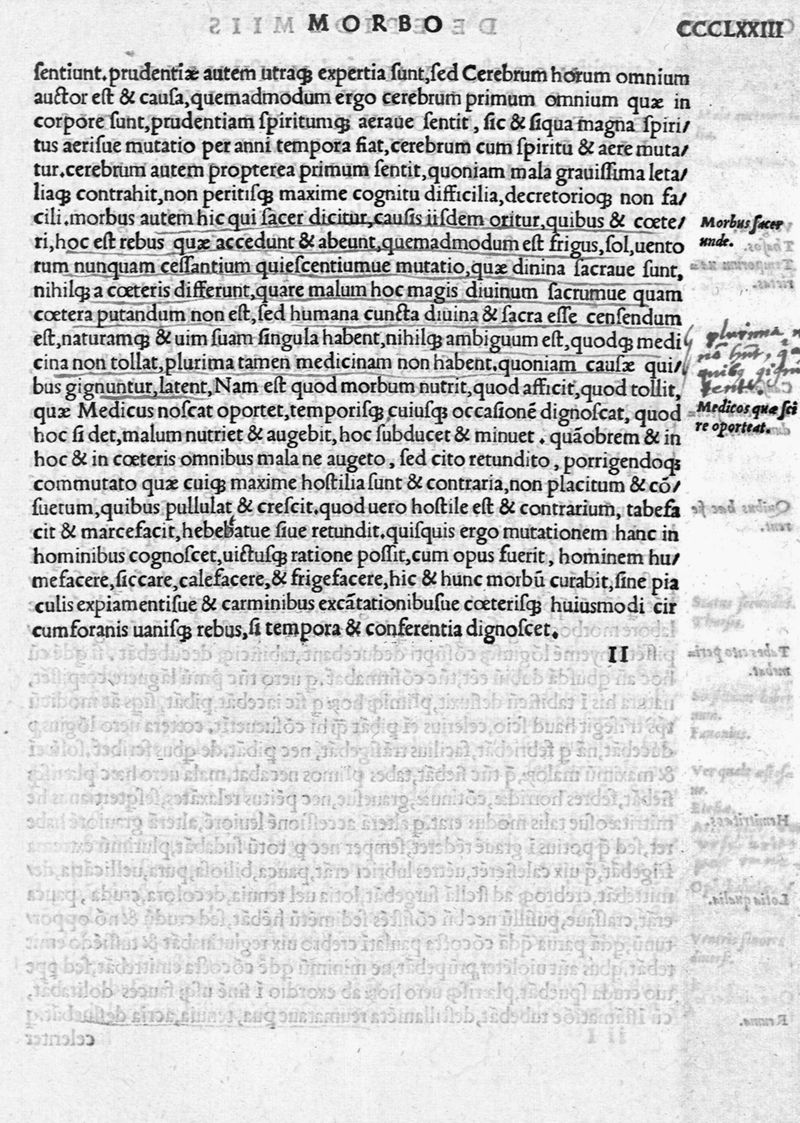 MORBO
CCCLXXIII
sentiunt.prudentiæ autem utraqꝫ expertia sunt,sed Cerebrum horum omnium
auctor est & causa,quemadmodum ergo cerebrum primum omnium quæ in
corpore sunt,prudentiam spiritumqꝫ aeraue sentit, sic & siqua magna spiri/
tus aerisue mutatio per anni tempora fiat,cerebrum cum spiritu & aere muta/
tur.cerebrum autem propterea primum sentit,quoniam mala grauissima leta/
liaqꝫ contrahit,non peritisqꝫ maxime cognitu difficilia,decretorioqꝫ non fa/
cili.morbus autem hic qui sacer dicitur,causis iisdem oritur,quibus & cœte/
ri,hoc est rebus quæ accedunt & abeunt,quemadmodum est frigus,sol,uento
rum nunquam cessantium quiescentiumue mutatio,quæ dinina sacraue sunt,
nihilqꝫ a cœteris differunt,quare malum hoc magis diuinum sacrumue quam
cœtera putandum non est,sed humana cuncta diuina & sacra esse censendum
est,naturamqꝫ & uim suam singula habent,nihilqꝫ ambiguum est,quodqꝫ medi
cina non tollat,plurima tamen medicinam non habent.quoniam causæ qui/
bus gignuntur,latent,Nam est quod morbum nutrit,quod afficit,quod tollit,
quæ Medicus noscat oportet,temporisqꝫ cuiusqꝫ occasionē dignoscat, quod
hoc si det,malum nutriet & augebit,hoc subducet & minuet . quāobrem & in
hoc & in cœteris omnibus mala ne augeto, sed cito retundito, porrigendoqꝫ
commutato quæ cuiqꝫ maxime hostilia sunt & contraria,non placitum & cō/
suetum,quibus pullulat & crescit.quod uero hostile est & contrarium, tabefa
cit & marcefacit,hebebatue siue retundit.quisquis ergo mutationem hanc in
hominibus cognoscet,uictusqꝫ ratione possit,cum opus fuerit, hominem hu/
mefacere,siccare,calefacere,& frigefacere,hic & hunc morbū curabit,sine pia
culis expiamentisue & carminibus excātationibusue cœterisqꝫ huiusmodi cir
cumforanis uanisqꝫ rebus,si tempora & conferentia dignoscet.
II
Morbus sacer
unde.
plurima
Medicos quæ sci
re oporteat.